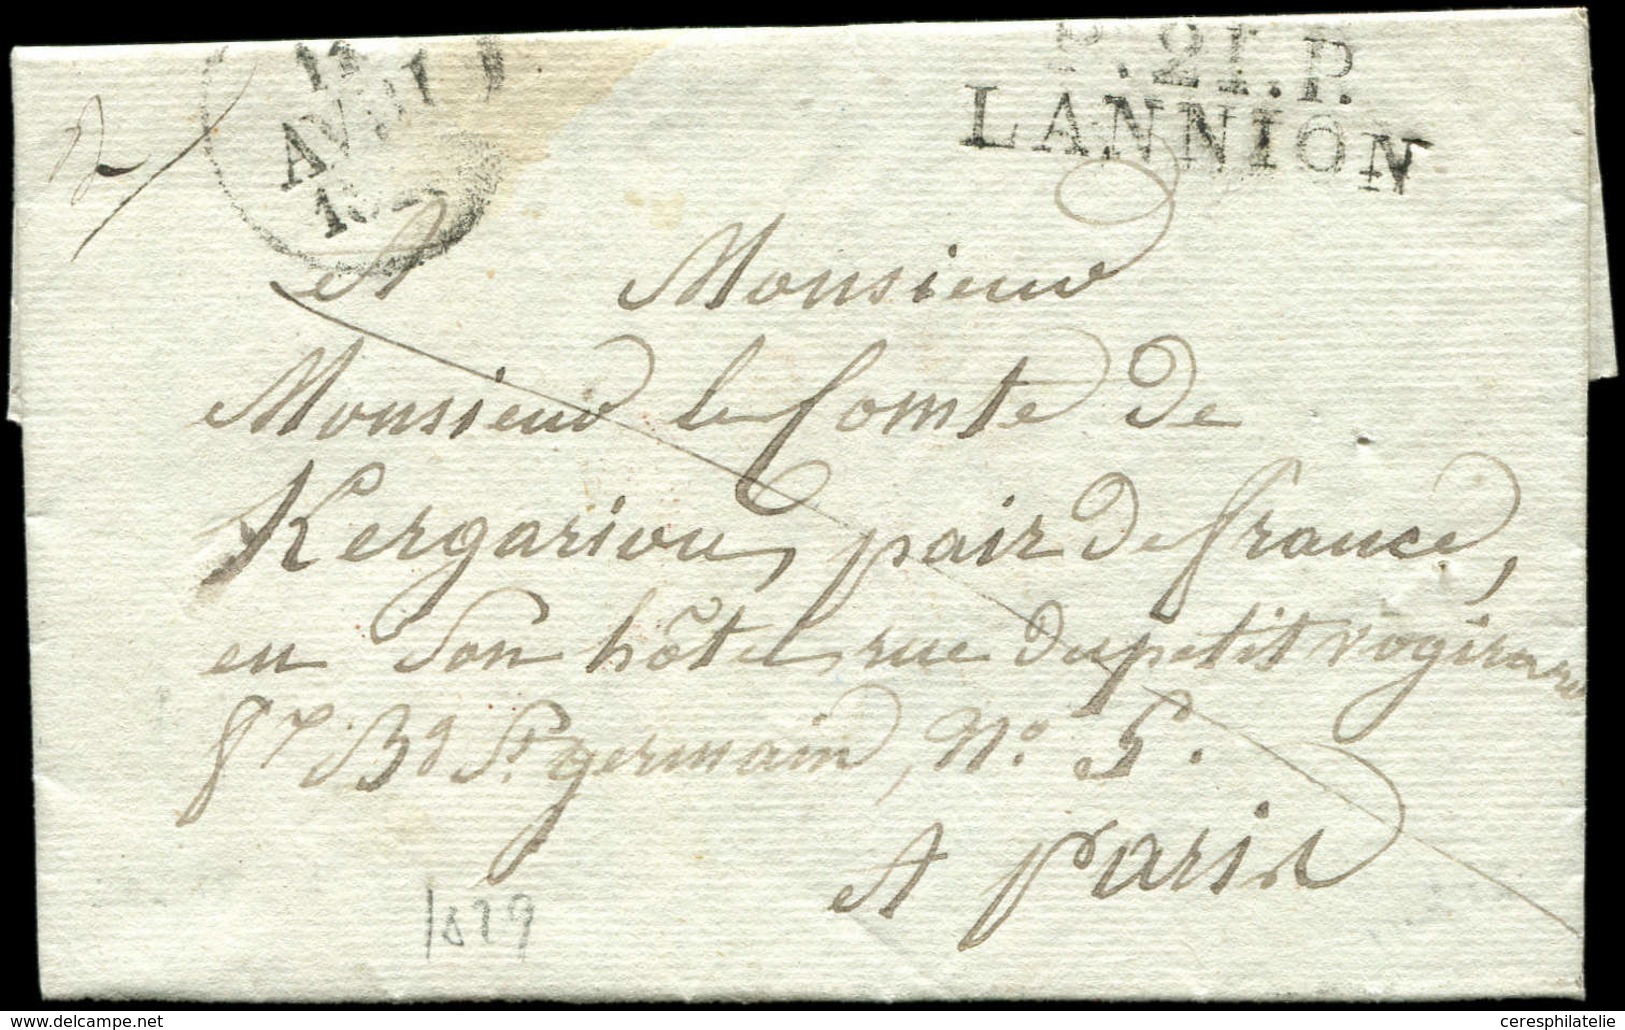 P.21.P.
LANNION
AVRIL
A Monsieur
Monsieur le Comte de
Kergariou, pair de france,
en son hôtel, rue du petit vogirard
fg Bg St. germain, No. 5.
A paris
1829
© www.delcampe.net
ceresphilatelie